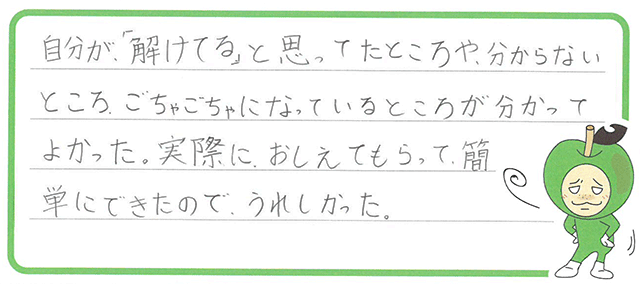 自分が、「解けてる」と思ってたところや、分からない
ところ、ごちゃごちゃになっているところが分かって
よかった。実際に、おしえてもらって、簡
単にできたので、うれしかった。